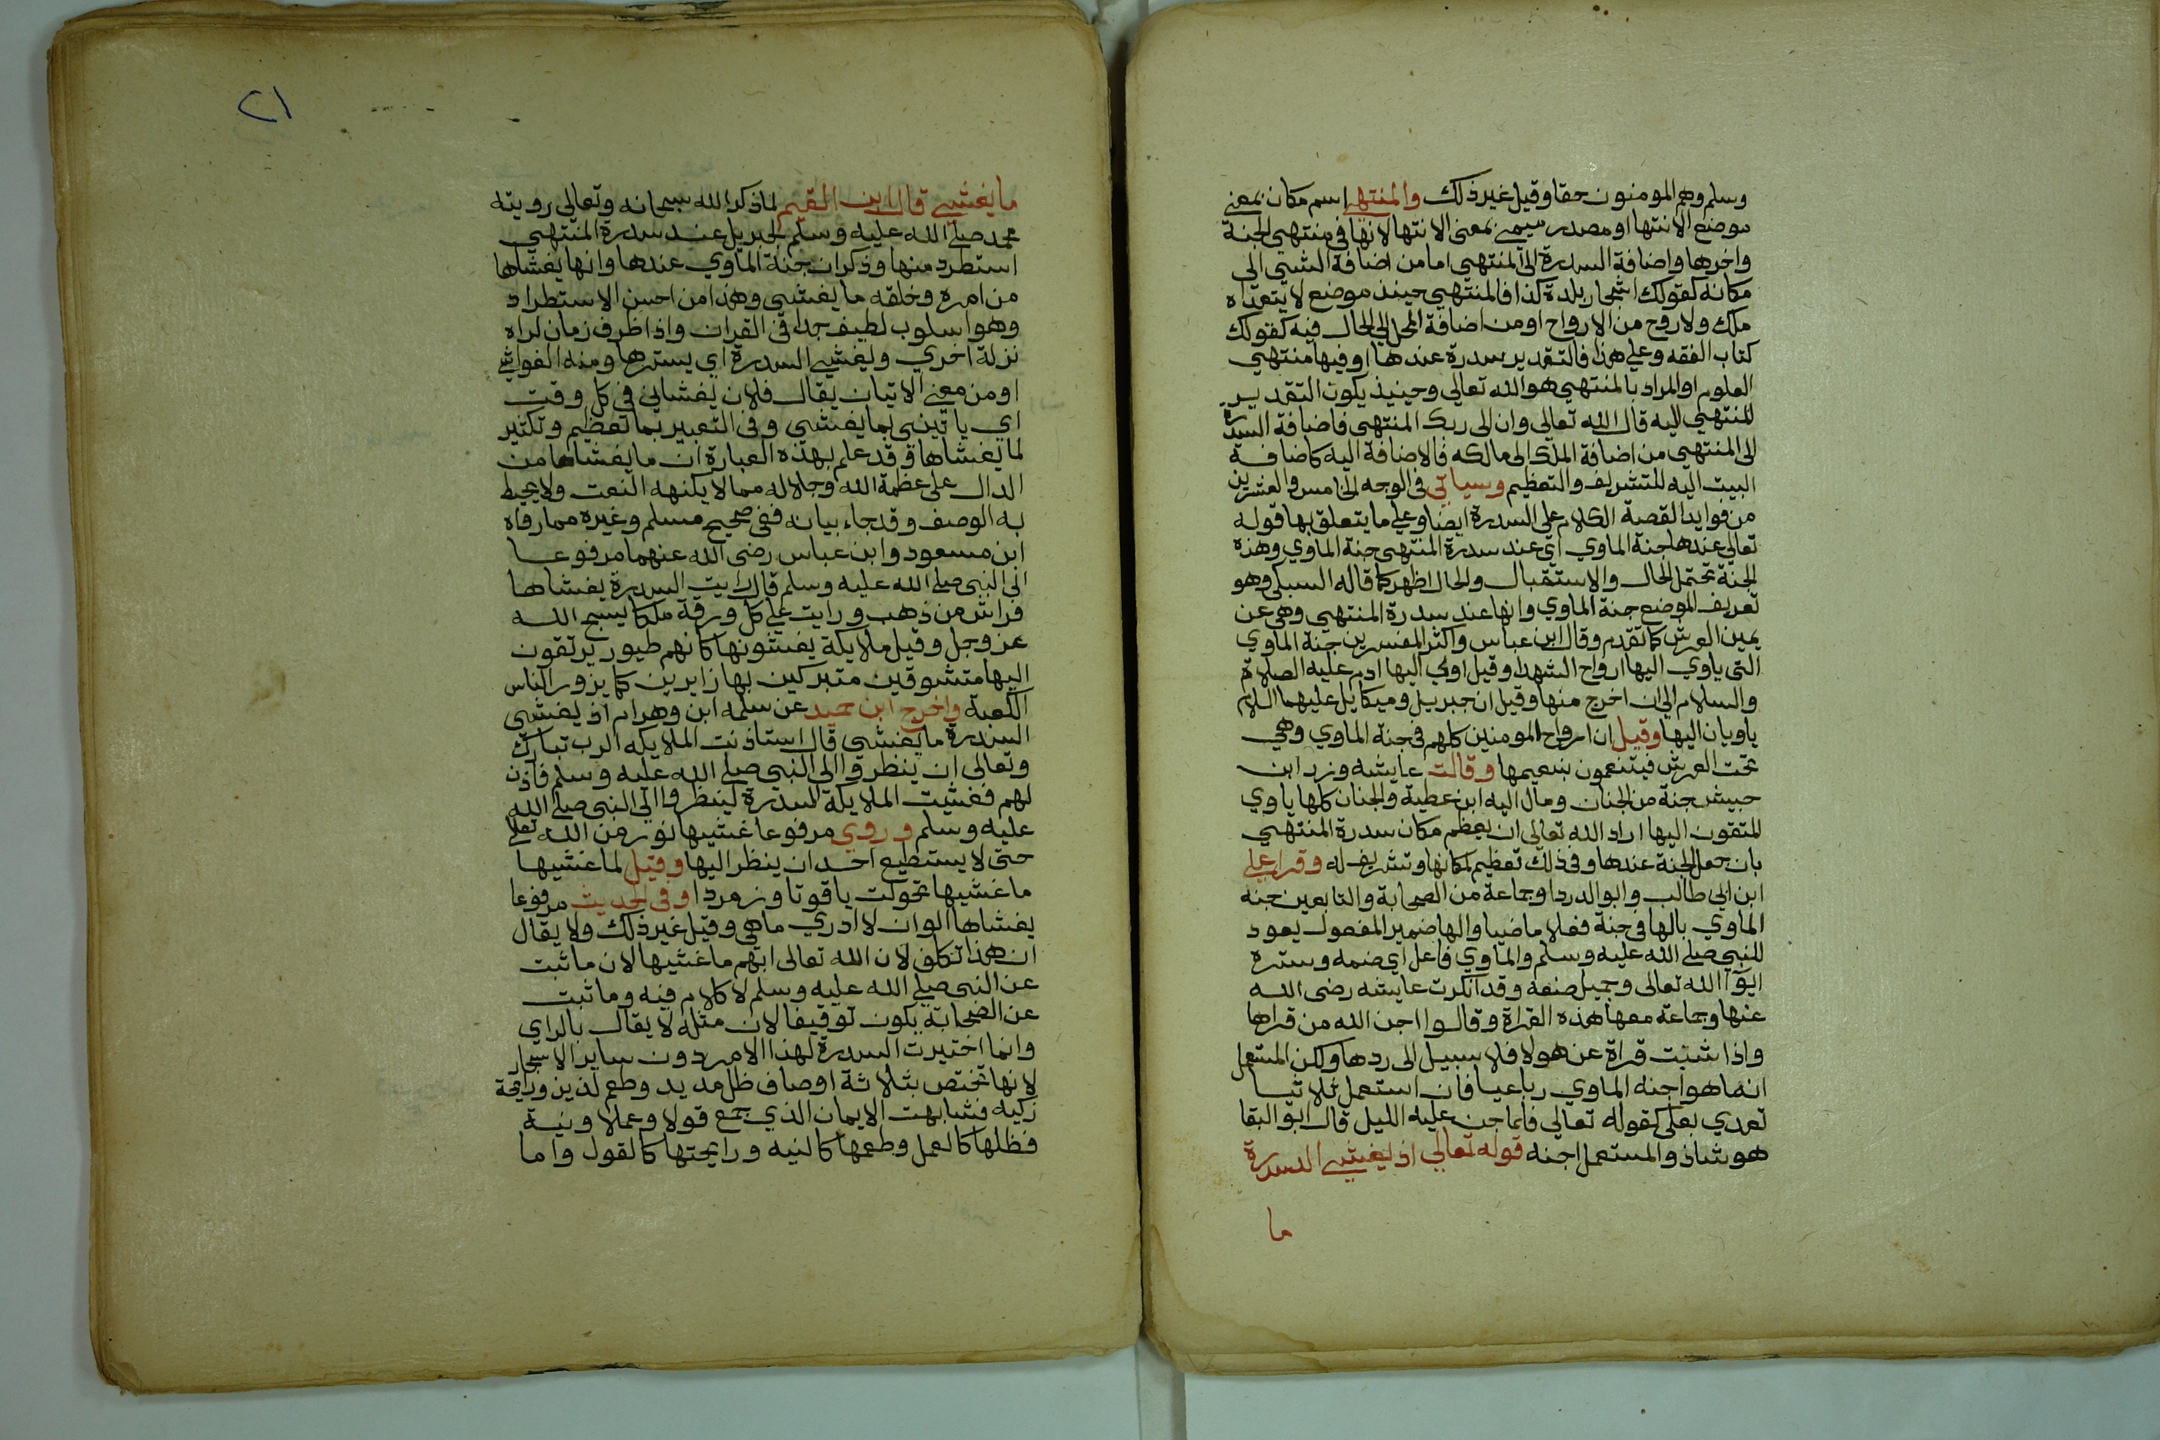 وسلم وهم المومنون حقا وقيل غير ذلك والمنتهي اسم مكان بمعني
موضع الانتها او مصدر ميمي بمعنى الانتها لانها في منتهي الجنة
واخرها واضافة السدرة الى المنتهي اما من اضافة الشيي الى
مكانه كقولك اشجار بلدة كذا فالمنتهي حينذ موضع لا يتعداه
ملك ولا روح من الارواح او من اضافة المحل الي الحال فيه كقولك
كتاب الفقه وعلي هذا فالتقدير سدرة عندها او فيها منتهي
العلوم او المراد بالمنتهي هو الله تعالي وحينيذ يكون التقدير
المنتهي اليه قال الله تعالى وان الى ربك المنتهي فاضافة السدرة
الى المنتهي من اضافة الملك الى مالكه فالاضافة اليه كاضافة
البيت اليه للتشريف والتعظيم وسياتي في الوجه الخامس والعشرين
من فوايد القصة الكلام على السدرة ايضا وعلي ما يتعلق بها قوله
تعالي عندها جنة الماوي اي عند سدرة المنتهي جنة الماوي وهذه
الجنة تحتمل الحال والاستقبال والحال اظهر كما قاله السبكي وهو
تعريف لموضع جنة الماوي وانها عند سدرة المنتهي وهي عن
يمين العرش كما تقدم وقال ابن عباس واكثر المفسرين جنة الماوي
التى ياوي اليها ارواح الشهدا وقيل اوي اليها ادم عليه الصلاة
والسلام الى ان اخرج منها وقيل ان جبريل وميكايل عليهما السلام
ياويان اليها وقيل ان ارواح المومنين كلهم في جنة الماوي وهي
تحت العرش فيتنعمون بنعيمها وقالت عايشه وزر ابن
حبيش جنة من الجنان ومال اليه ابن عطية والجنان كلها ياوي
المتقون اليها اراد الله تعالى ان يعظم مكان سدرة المنتهي
بان جعل الجنة عندها وفي ذلك تعظيم لمكانها وتشريف له وقرا علي
ابن ابي طالب وابو الدردا وجماعة من الصحابة والتابعين جنه
الماوي بالها في جنة فعلا ماضيا والها ضمير المفعول يعود
للنبي صلي الله عليه وسلم والماوي فاعل اي ضمه وستره
ايوا الله تعالى وجميل صنعه وقد انكرت عايشه رضى الله
عنها وجماعة معها هذه القراة وقالوا اجن الله من قراها
واذا ثبتت قراة عن هولا فلا سبيل الى ردها ولكن المستعمل
انما هو اجنه الماوي رباعيا فان استعمل ثلاثيا
تعدي بعلي كقوله تعالي فلما جن عليه الليل قال ابو البقا
هو شاذ والمستعمل اجنه قوله تعالي اذ يغشي السدرة
ما
٢١
ما يغشي قال ابن القيم لما ذكر الله سبحانه وتعالي رويته
محمد صلي الله عليه وسلم لجبريل عند سدرة المنتهي
استطرد منها وذكر ان جنة الماوي عندها وانها يغشاها
من امره وخلقه ما يغشي وهذا من احسن الاستطراد
وهو اسلوب لطيف جدا في القران واذا ظرف زمان لراه
نزلة اخري وليغشي السدرة اي يسترها ومنه الغواشي
او من معني الاتيان يقال فلان يغشاني في كل وقت
اي ياتيني بما يغشي وفى التعبير بما تعظيم وتكثير
لما يغشاها وقد علم بهذه العبارة ان ما يغشاها من
الدال على عظمة الله وجلاله مما لا يكنهه النعت ولا يحيط
به الوصف وقد جاء بيانه ففي صحيح مسلم وغيره مما رواه
ابن مسعود وابن عباس رضى الله عنهما مرفوعا
الى النبي صلي الله عليه وسلم قال رايت السدرة يغشاها
فراش من ذهب ورايت علي كل ورقة ملكا يسبح الله
عز وجل وقيل ملايكة يغشونها كانهم طيور يرتقون
اليها متشوقين متبركين بها زايرين كما يزور الناس
الكعبة واخرج ابن حميد عن سلمه ابن وهرام اذ يغشي
السدرة ما يغشي قال استاذنت الملايكه الرب تبارك
وتعالى ان ينظروا الي النبي صلي الله عليه وسلم فاذن
لهم فغشيت الملايكة السدرة لينظروا الي النبي صلي الله
عليه وسلم وروي مرفوعا غشيها نور من الله تعلا
حتي لا يستطيع احد ان ينظر اليها وقيل لما غشيها
ما غشيها تحولت ياقوتا وزمردا وفي الحديث مرفوعا
يغشاها الوان لا ادري ما هي وقيل غير ذلك ولا يقال
ان هذا تكلف لان الله تعالى ابهم ما غشيها لان ما ثبت
عن النبي صلي الله عليه وسلم لا كلام فيه وما ثبت
عن الصحابة يكون توقيفا لان مثله لا يقال بالراي
وانما اختيرت السدرة لهذا الامر دون ساير الاشجار
لانها تختص بثلاثة اوصاف ظل مديد وطعم لذيذ ورايحة
زكيه فشابهت الايمان الذي جمع قولا وعملا ونية
فظلها كالعمل وطعمها كالنيه ورايحتها كالقول واما